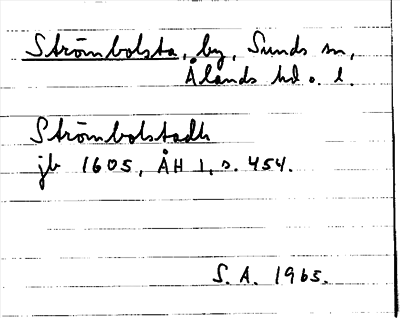 Strömbolsta, by, Sunds sn,
Ålands hd o. l.
Strömbolstadh
jb 1605, ÅH 1, s. 454.
S. A. 1965.